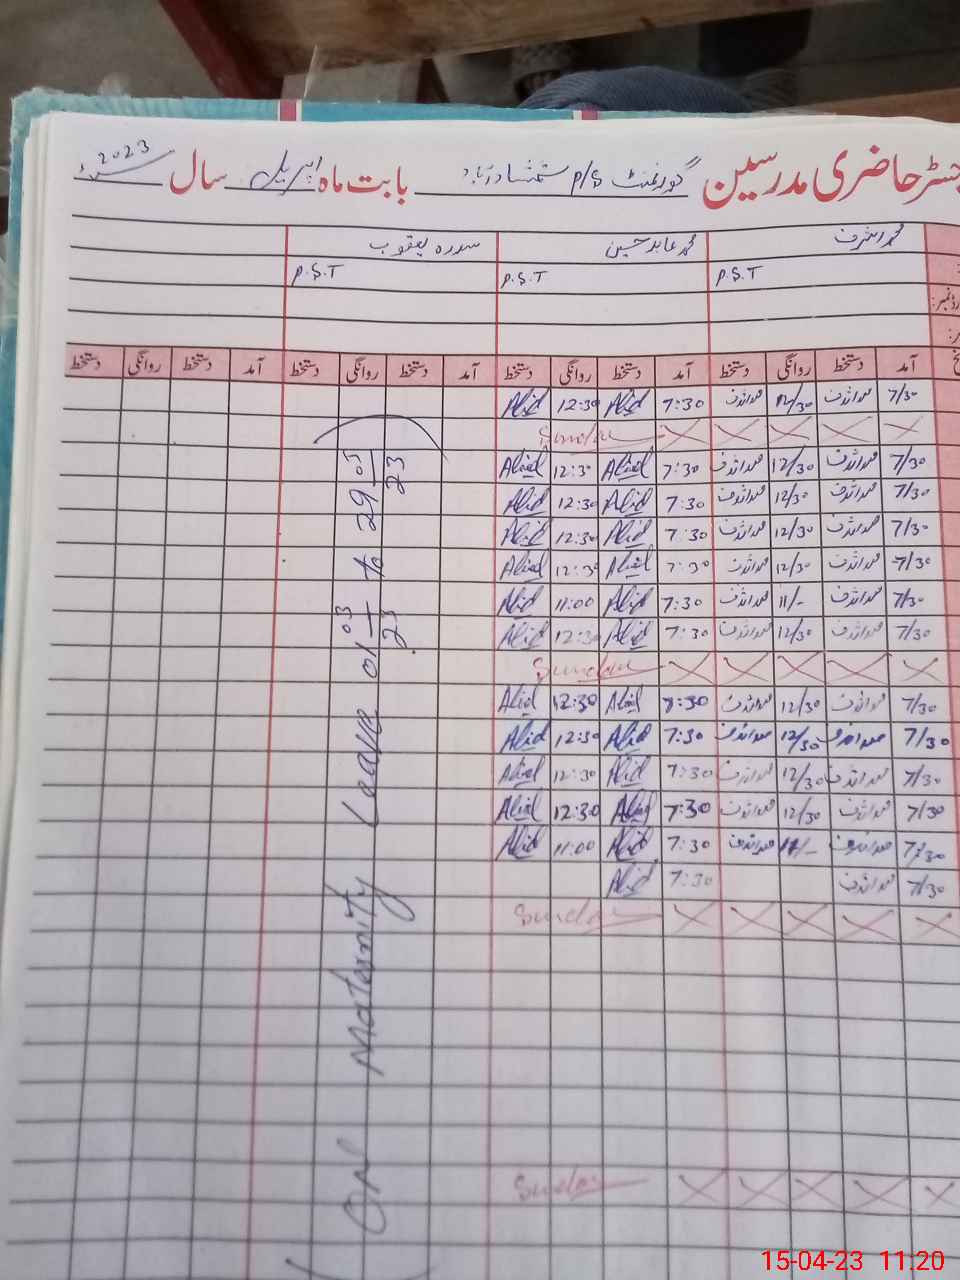 رجسٹر حاضری مدرسین گورنمنٹ P/S شمشادآباد بابت ماہ اپریل سال 2023ء
محمد اشرف محمد عابد حسین سدرہ یعقوب
P.S.T P.S.T P.S.T
آمد دستخط روانگی دستخط آمد دستخط روانگی دستخط آمد دستخط روانگی دستخط آمد دستخط روانگی دستخط
7/30 محمد اشرف 12/30 محمد اشرف 7:30 Abid 12:30 Abid
Sunday
7/30 محمد اشرف 12/30 محمد اشرف 7:30 Abid 12:30 Abid
7/30 محمد اشرف 12/30 محمد اشرف 7:30 Abid 12:30 Abid
7/30 محمد اشرف 12/30 محمد اشرف 7:30 Abid 12:30 Abid
7/30 محمد اشرف 12/30 محمد اشرف 7:30 Abid 12:30 Abid
7/30 محمد اشرف 11/- محمد اشرف 7:30 Abid 11:00 Abid
7/30 محمد اشرف 12/30 محمد اشرف 7:30 Abid 12:30 Abid
Sunday
7/30 محمد اشرف 12/30 محمد اشرف 7:30 Abid 12:30 Abid
7/30 محمد اشرف 12/30 محمد اشرف 7:30 Abid 12:30 Abid
7/30 محمد اشرف 12/30 محمد اشرف 7:30 Abid 12:30 Abid
7/30 محمد اشرف 12/30 محمد اشرف 7:30 Abid 12:30 Abid
7/30 محمد اشرف 11/- محمد اشرف 7:30 Abid 11:00 Abid
7/30 محمد اشرف 7:30 Abid
Sunday
Sunday
On Maternity Leave 01 03/23 to 29 05/23
15-04-23 11:20